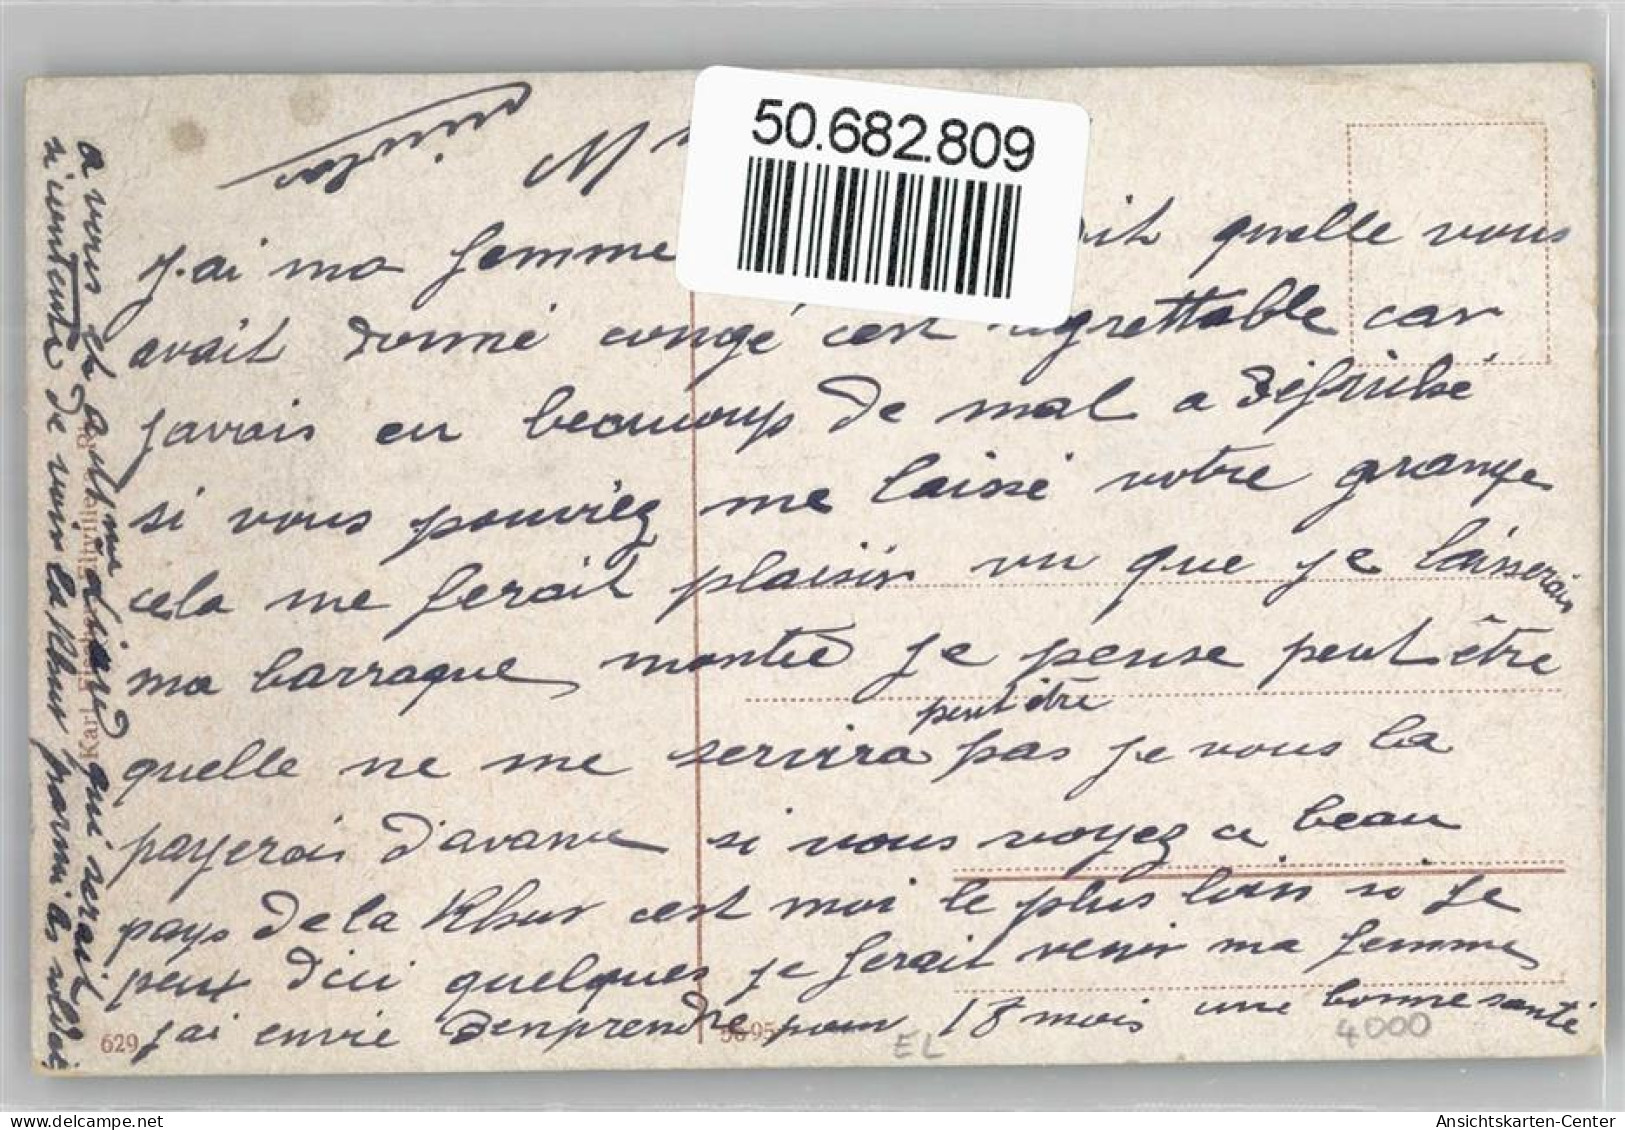 50.682.809
M
j.ai ma femme quelle vous
avait donné congé cest regrettable car
javais eu beaucoup de mal a
si vous pouviez me laissé votre grange
cela me ferait plaisir vu que je laisserais
ma barraque monté je pense peut être
peut être
quelle ne me servira pas je vous la
payerais d'avance si vous voyez ce beau
pays de la Rhur cest moi le plus loin si je
peux d'ici quelques je ferait venir ma femme
jai envie denprendre pour 18 mois une bonne santé
a vous et a qui serait
si contente de voir la Rhur parmi les soldat
629
EL
4000
Ansichtskarten-Center